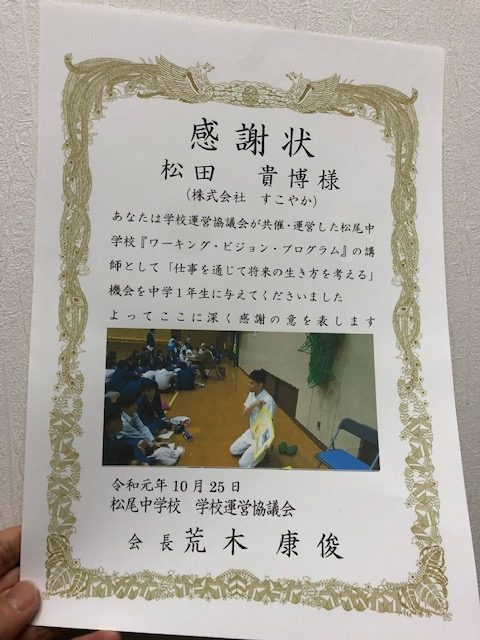 感謝状
松田 貴博様
(株式会社 すこやか)
あなたは学校運営協議会が共催・運営した松尾中
学校『ワーキング・ビジョン・プログラム』の講
師として「仕事を通じて将来の生き方を考える」
機会を中学1年生に与えてくださいました
よってここに深く感謝の意を表します
令和元年10月25日
松尾中学校 学校運営協議会
会長 荒木 康俊